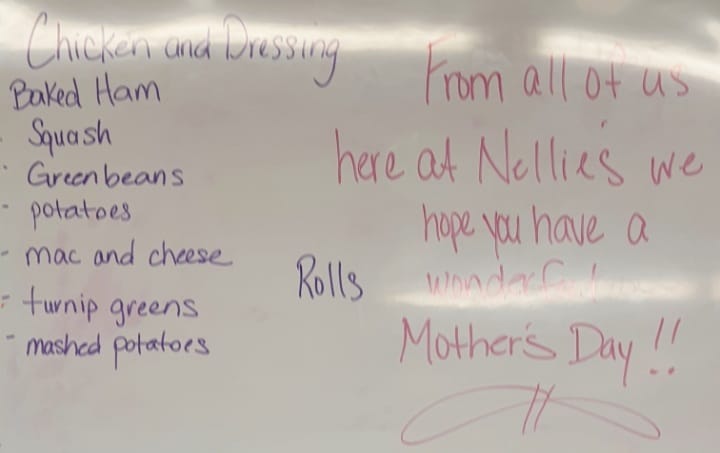 Chicken and Dressing
Baked Ham
- Squash
- Green beans
- potatoes
- mac and cheese
- turnip greens
- mashed potatoes
Rolls
From all of us
here at Nellie's we
hope you have a
wonderful
Mother's Day!!